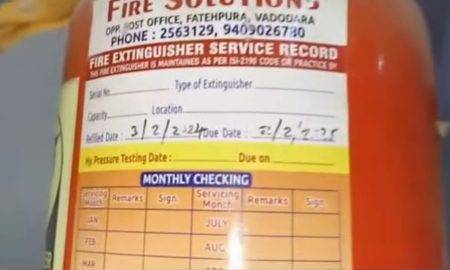 FIRE SOLUTIONS
OPP. POST OFFICE, FATEHPURA, VADODARA
PHONE : 2563129, 9409026780
FIRE EXTINGUISHER SERVICE RECORD
THIS FIRE EXTINGUISHER IS MAINTAINED AS PER ISI-2190 CODE OR PRACTICE BY
Serial No. Type of Extinguisher
Capacity Location
Refilled Date : 3/2/2024 Due Date : /2/2025
Hy. Pressure Testing Date : Due on
MONTHLY CHECKING
Servicing Month Remarks Sign. Servicing Month Remarks Sign
JAN JULY
FEB AUG
MAR